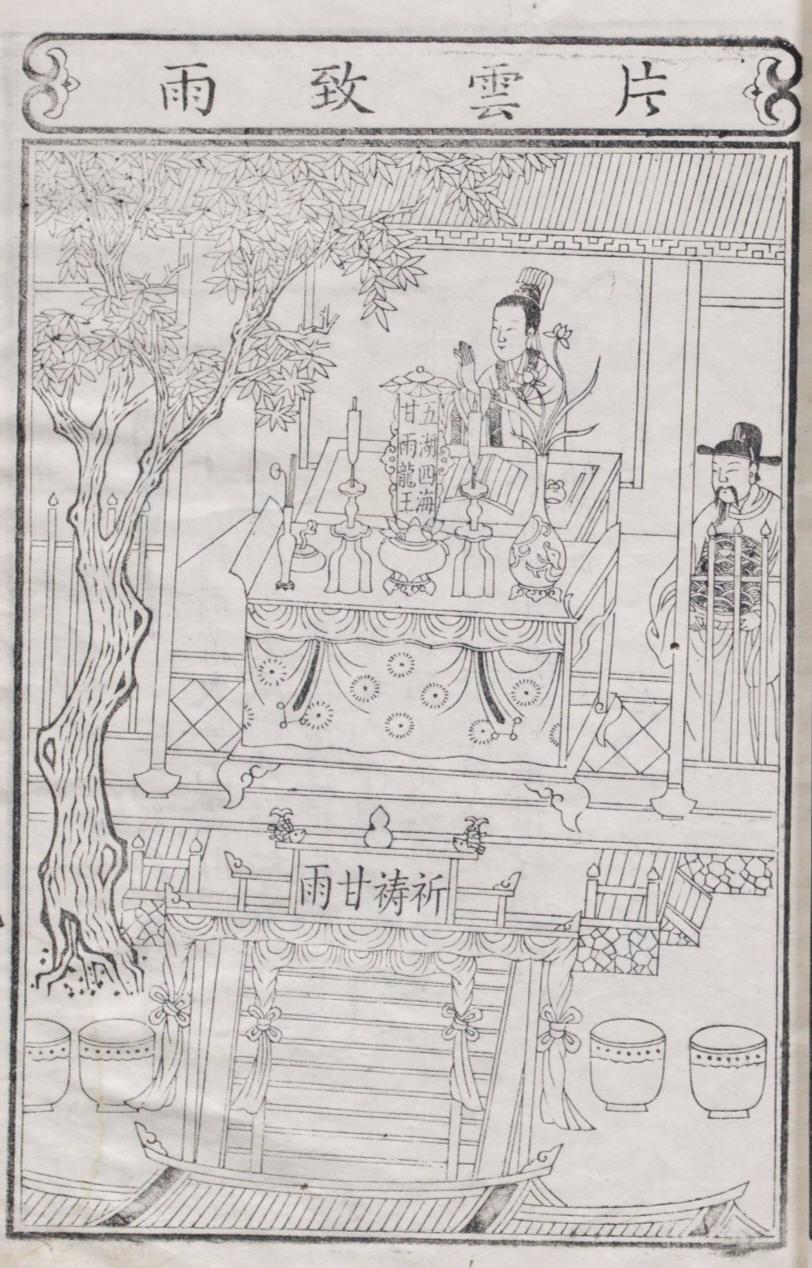 片雲致雨
五湖四海
甘雨龍王
祈祷甘雨